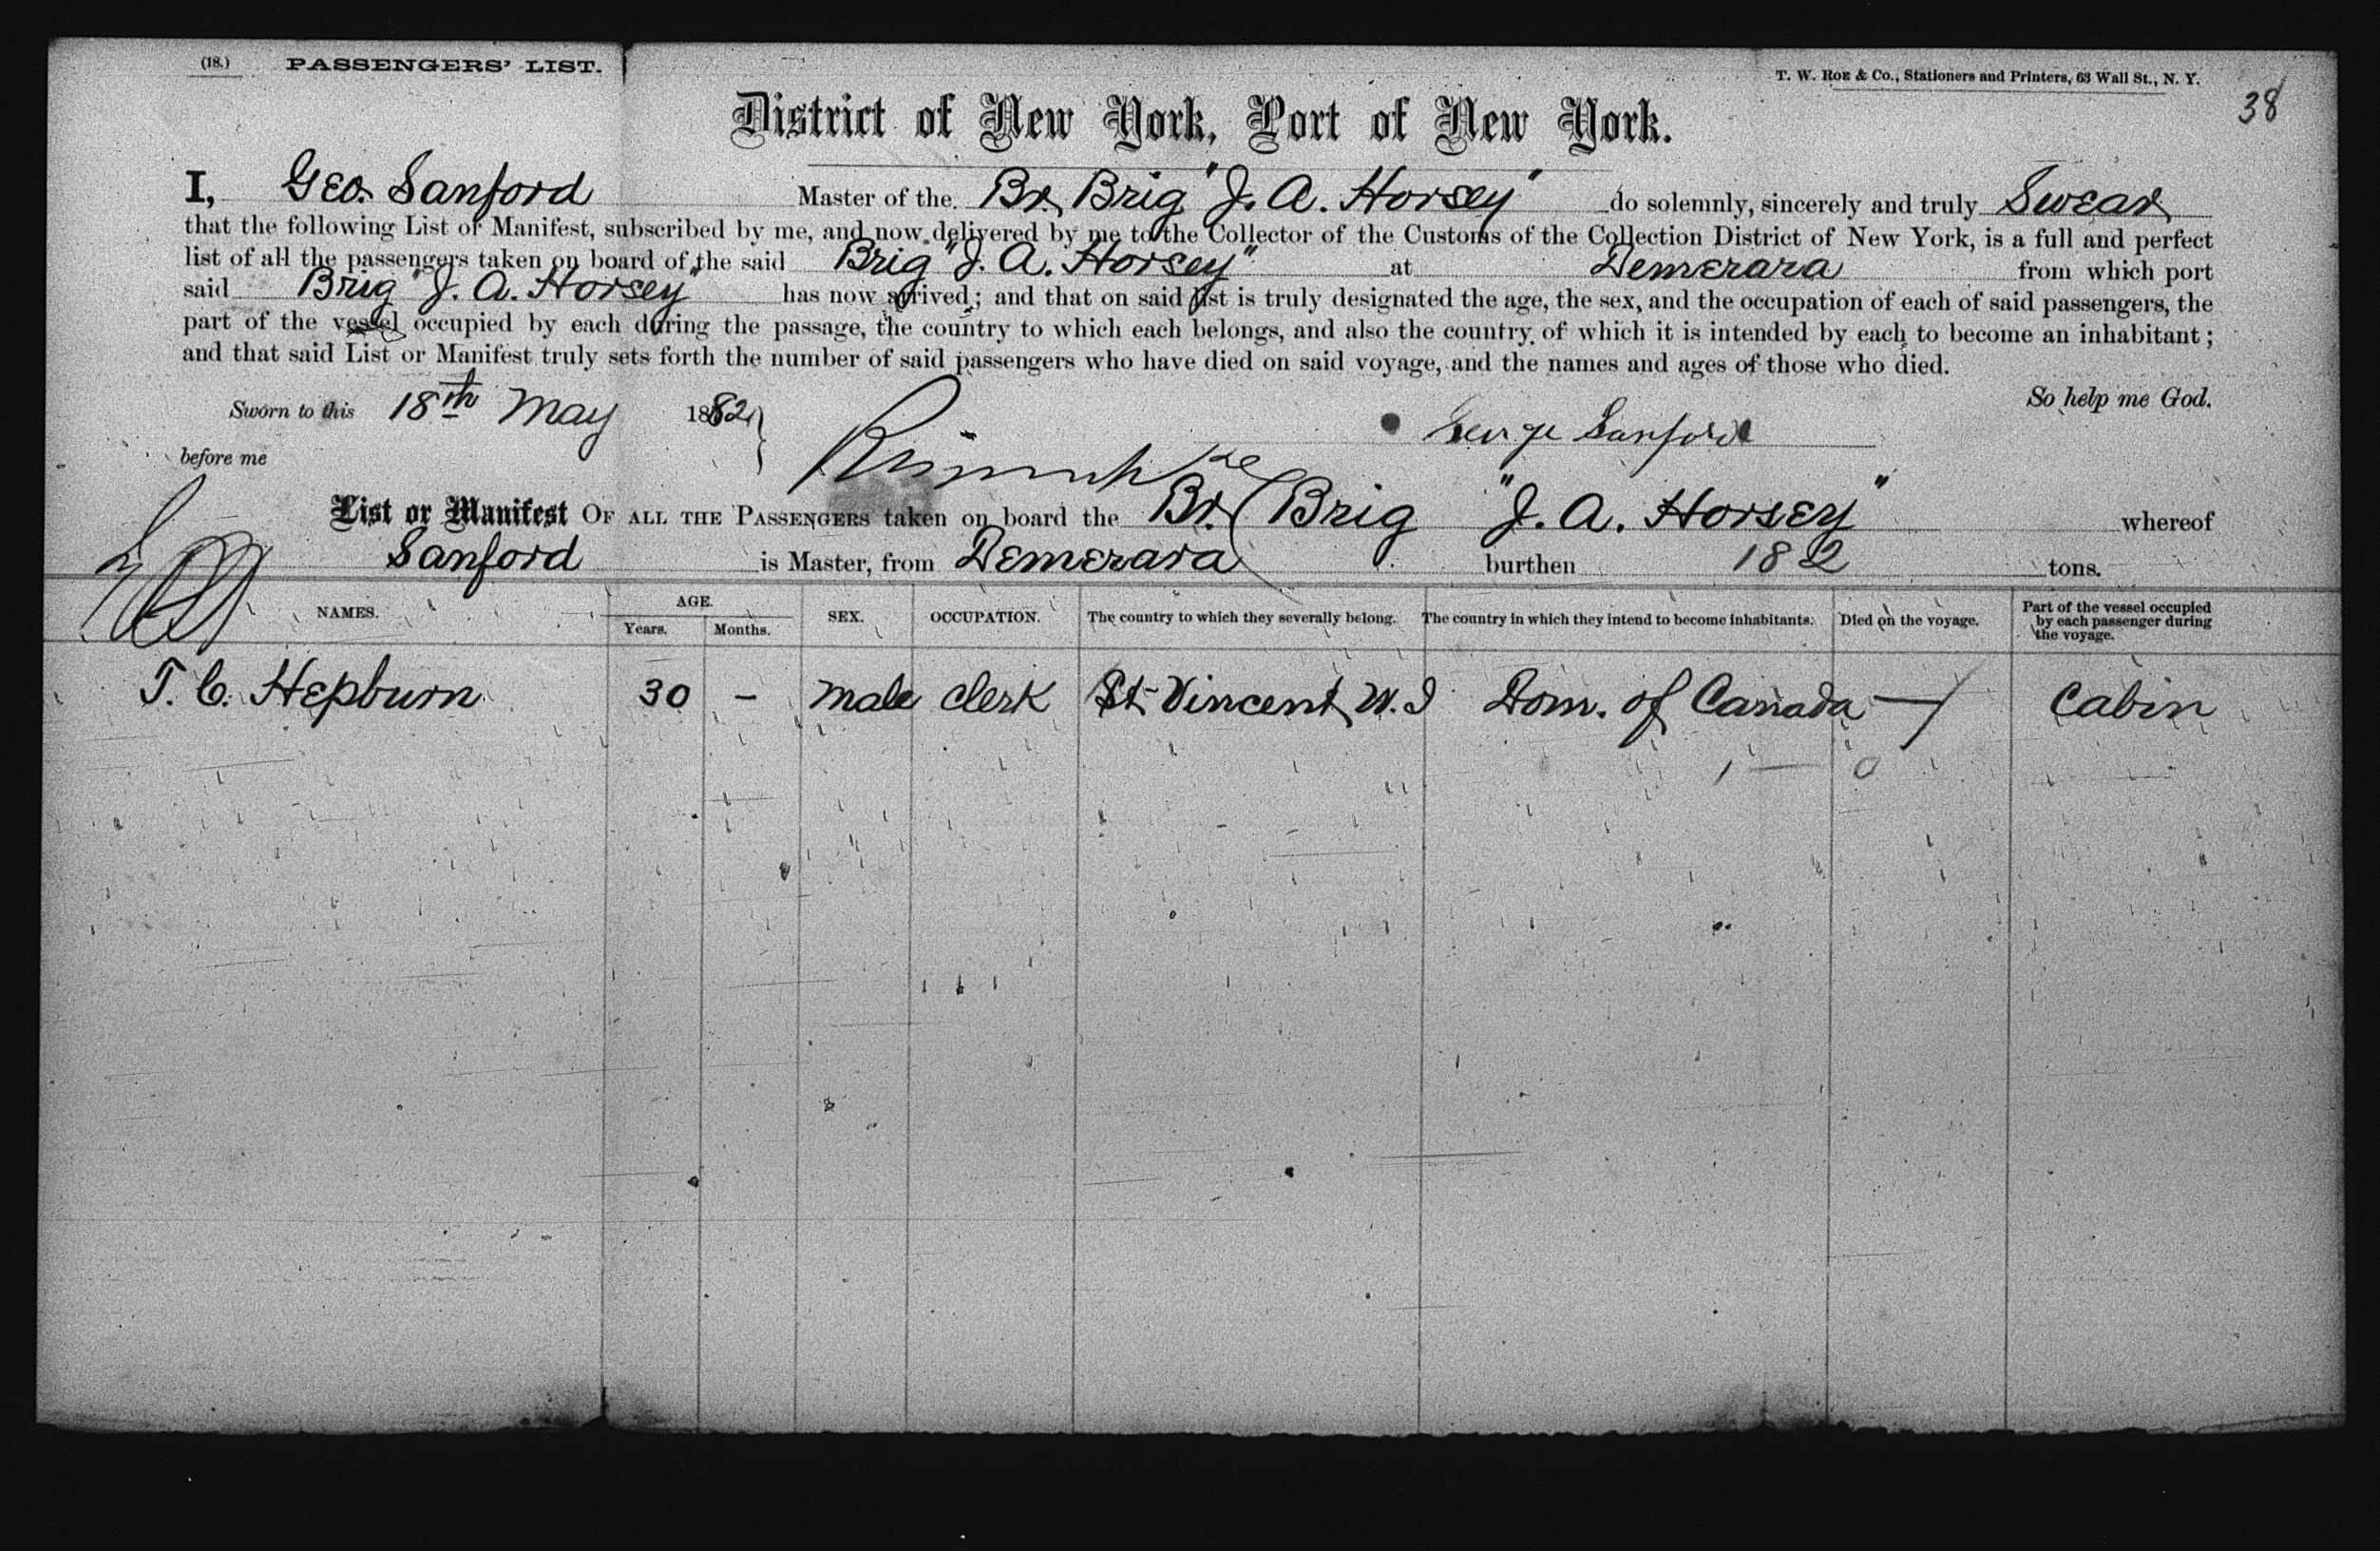 (18.) PASSENGERS' LIST.
T. W. Roe & Co., Stationers and Printers, 63 Wall St., N. Y.
38
District of New York, Port of New York.
I, Geo. Sanford Master of the Br. Brig "J. A. Horsey" do solemnly, sincerely and truly Swear
that the following List or Manifest, subscribed by me, and now delivered by me to the Collector of the Customs of the Collection District of New York, is a full and perfect
list of all the passengers taken on board of the said Brig "J. A. Horsey" at Demerara from which port
said Brig "J. A. Horsey" has now arrived; and that on said list is truly designated the age, the sex, and the occupation of each of said passengers, the
part of the vessel occupied by each during the passage, the country to which each belongs, and also the country of which it is intended by each to become an inhabitant;
and that said List or Manifest truly sets forth the number of said passengers who have died on said voyage, and the names and ages of those who died.
So help me God.
Sworn to this 18th May 1882
George Sanford
before me
List or Manifest OF ALL THE PASSENGERS taken on board the Br. Brig "J. A. Horsey" whereof
Sanford is Master, from Demerara burthen 182 tons.
NAMES. AGE. Years. Months. SEX. OCCUPATION. The country to which they severally belong. The country in which they intend to become inhabitants. Died on the voyage. Part of the vessel occupied by each passenger during the voyage.
T. C. Hepburn 30 – male clerk St. Vincent W. I Dom. of Canada — Cabin
1 — 0